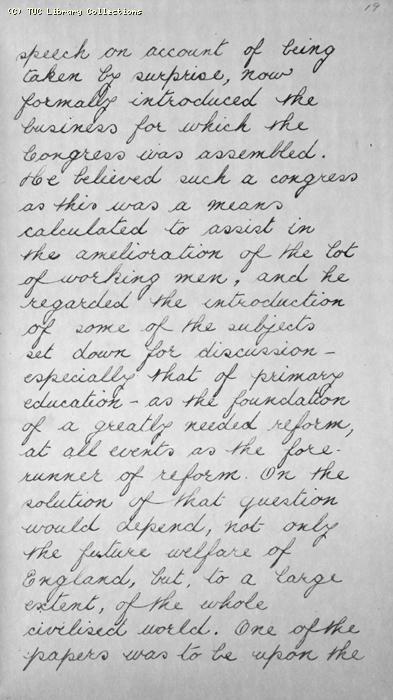 (C) TUC Library Collections
19
speech on account of being
taken by surprise, now
formally introduced the
business for which the
Congress was assembled.
He believed such a congress
as this was a means
calculated to assist in
the amelioration of the lot
of working men, and he
regarded the introduction
of some of the subjects
set down for discussion –
especially that of primary
education – as the foundation
of a greatly needed reform,
at all events as the fore-
runner of reform. On the
solution of that question
would depend, not only
the future welfare of
England, but, to a large
extent, of the whole
civilised world. One of the
papers was to be upon the